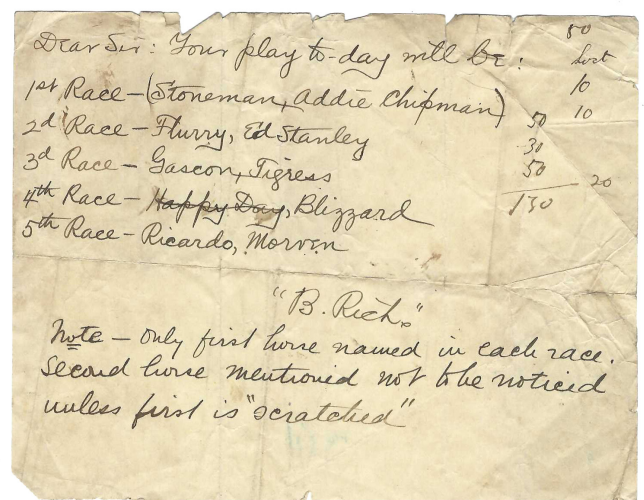 Dear Sir: Your play to-day will be:
1st Race - (Stoneman, Addie Chipman)
2d Race - Flurry, Ed Stanley
3d Race - Gascon, Tigress
4th Race - Happy Day, Blizzard
5th Race - Ricardo, Morven
50
Lost
10
10
50
30
50
20
130
"B. Rich."
Note - only first horse named in each race.
Second horse mentioned not to be noticed
unless first is "scratched"